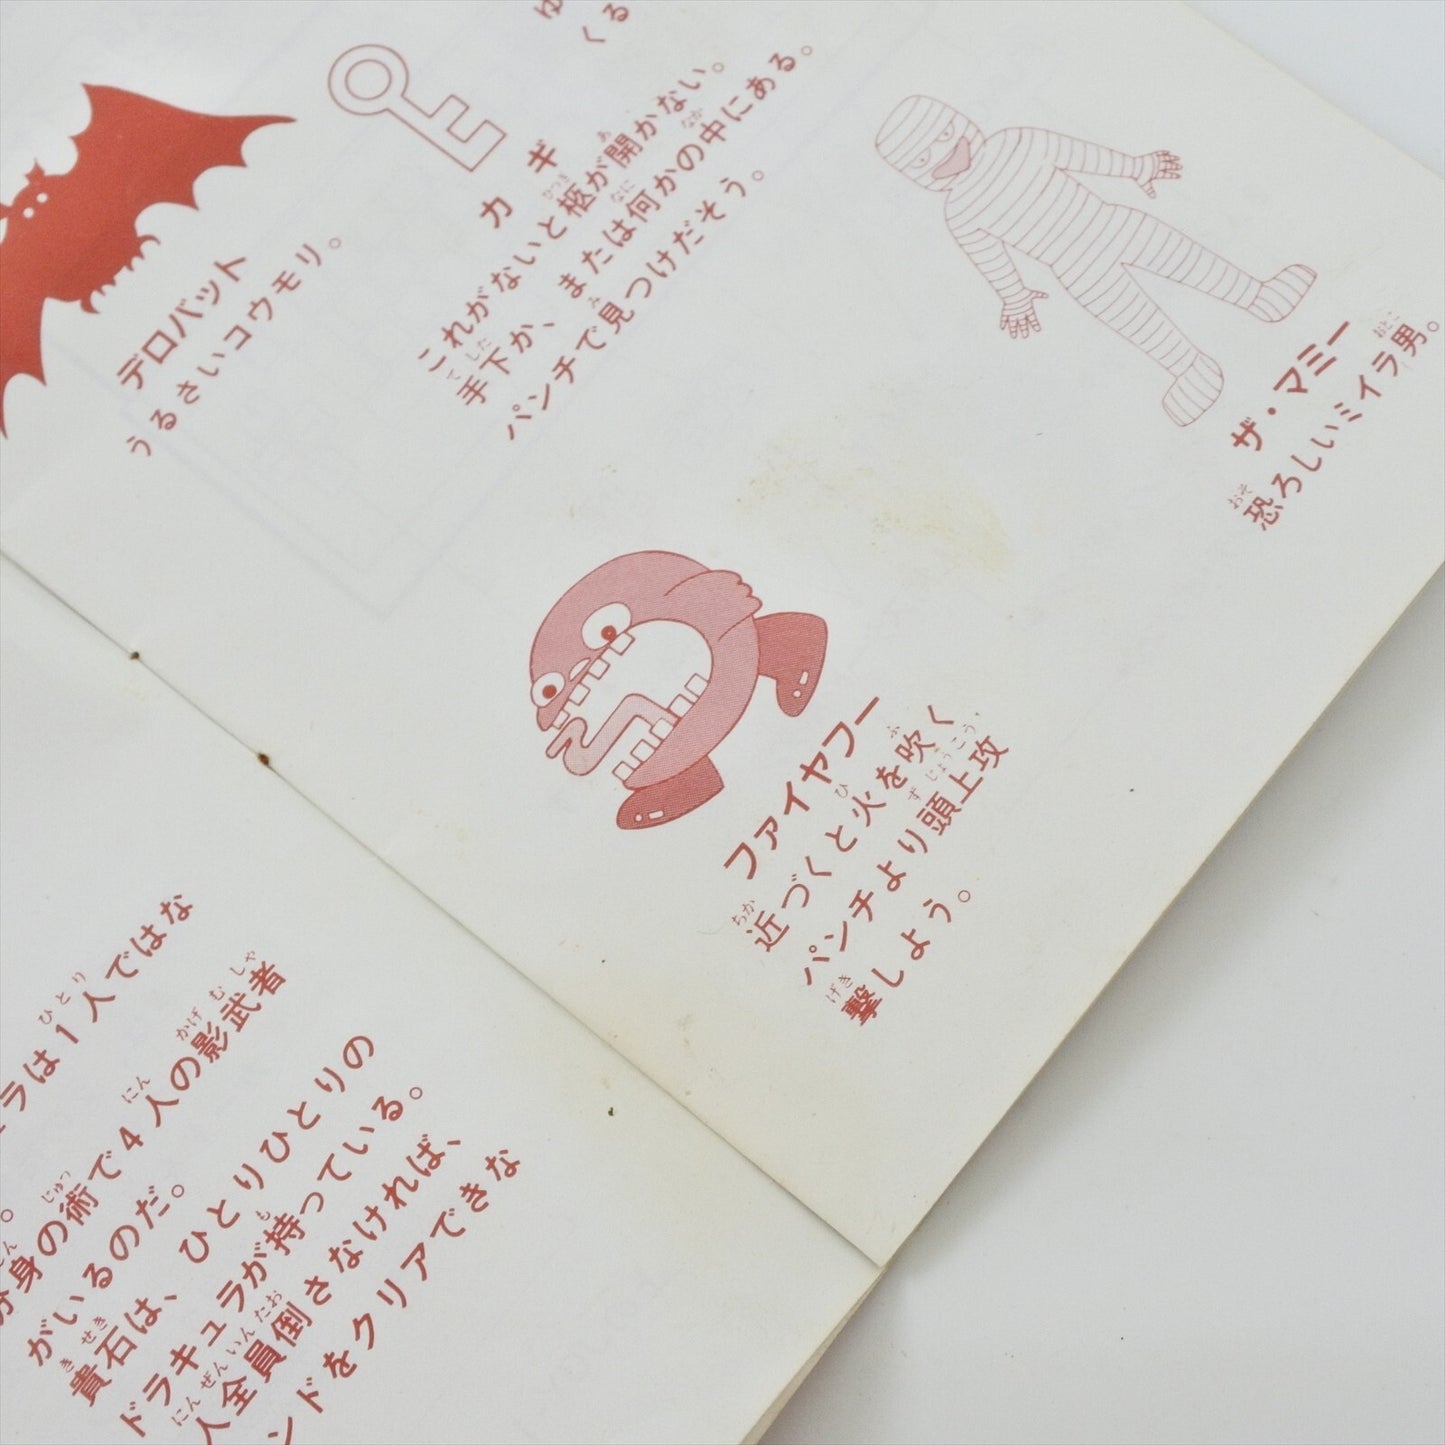 ゆ
くる
カギ
これがないと柩が開かない。
手下か、または何かの中にある。
パンチで見つけだそう。
デロバット
うるさいコウモリ。
ザ・マミー
恐ろしいミイラ男。
ファイヤフー
近づくと火を吹く
パンチより頭上攻
撃しよう。
ラは1人ではな
。
分身の術で4人の影武者
がいるのだ。
貴石は、ひとりひとりの
ドラキュラが持っている。
人全員倒さなければ、
ンドをクリアできな